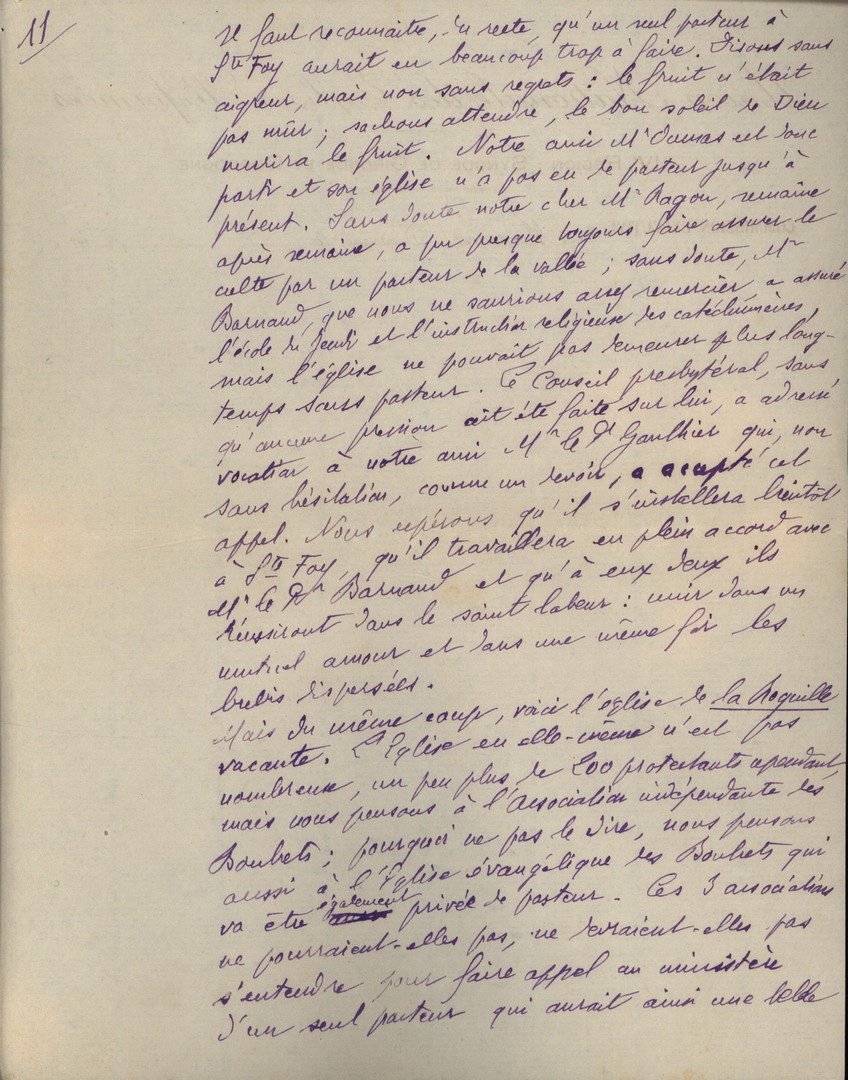 11
Il faut reconnaitre, du reste, qu'un seul pasteur à
Ste Foy aurait eu beaucoup trop à faire. Disons sans
aigreur, mais non sans regrets : le fruit n'était
pas mûr ; sachons attendre, le bon soleil de Dieu
murira le fruit. Notre ami Mr Damas est donc
parti et son église n'a pas eu de pasteur jusqu'à
présent. Sans doute notre cher Mr Ragon, semaine
après semaine, a pu presque toujours faire assurer le
culte par un pasteur de la vallée ; sans doute, Mr
Barnaud, que nous ne saurions assez remercier, a assuré
l'école du Jeudi et l'instruction religieuse des catéchumènes,
mais l'église ne pouvait pas demeurer plus long-
temps sans pasteur. Le Conseil presbytéral, sans
qu'aucune pression ait été faite sur lui, a adressé
vocation à notre ami Mr le Pr Gaulthier qui, non
sans hésitation, comme un devoir, a accepté cet
appel. Nous espérons qu'il s'installera bientôt
à Ste Foy, qu'il travaillera en plein accord avec
Mr le Pr Barnaud et qu'à eux deux ils
réussiront dans le saint labeur : unir dans un
mutuel amour et dans une même foi les
brebis dispersées.
Mais du même coup, voici l'église de la Roquille
vacante. L'Eglise en elle-même n'est pas
nombreuse, un peu plus de 200 protestants cependant,
mais nous pensons à l'Association indépendante des
Bouhets ; pourquoi ne pas le dire, nous pensons
aussi à l'Eglise évangélique des Bouhets qui
va être également privée de pasteur. Ces 3 associations
ne pourraient-elles pas, ne devraient-elles pas
s'entendre pour faire appel au ministère
d'un seul pasteur qui aurait ainsi une belle